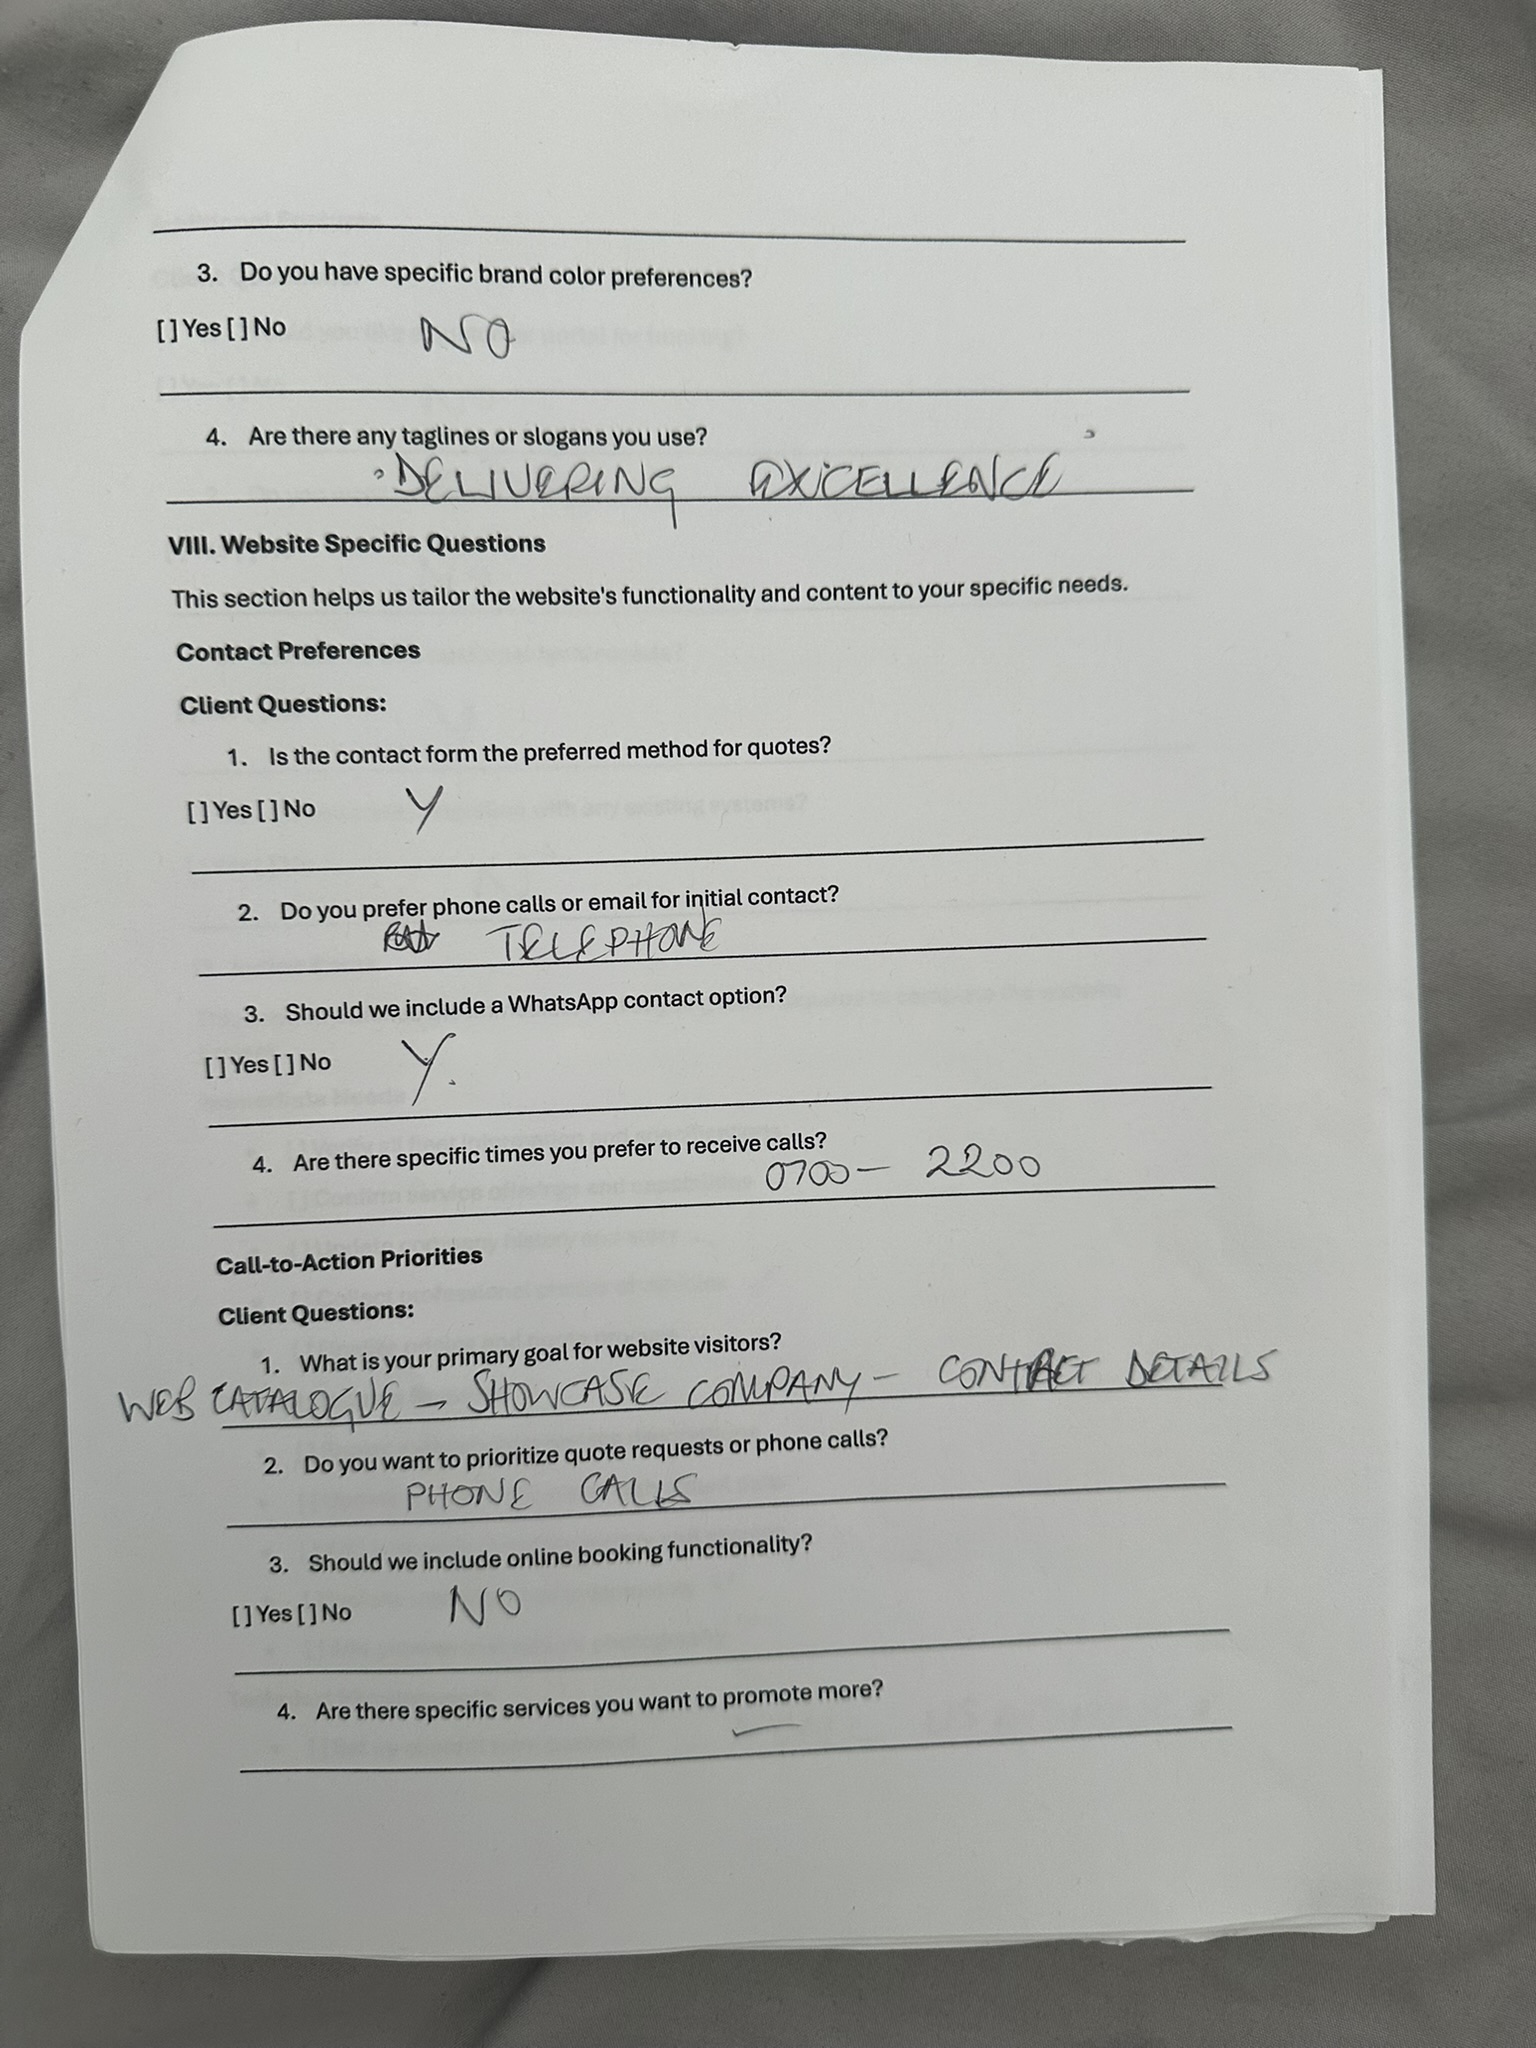 3. Do you have specific brand color preferences?
[ ] Yes [ ] No NO
4. Are there any taglines or slogans you use?
'DELIVERING EXCELLENCE'
VIII. Website Specific Questions
This section helps us tailor the website's functionality and content to your specific needs.
Contact Preferences
Client Questions:
1. Is the contact form the preferred method for quotes?
[ ] Yes [ ] No Y
2. Do you prefer phone calls or email for initial contact?
TELEPHONE
3. Should we include a WhatsApp contact option?
[ ] Yes [ ] No Y.
4. Are there specific times you prefer to receive calls?
0700 - 2200
Call-to-Action Priorities
Client Questions:
1. What is your primary goal for website visitors?
WEB CATALOGUE - SHOWCASE COMPANY - CONTACT DETAILS
2. Do you want to prioritize quote requests or phone calls?
PHONE CALLS
3. Should we include online booking functionality?
[ ] Yes [ ] No NO
4. Are there specific services you want to promote more?